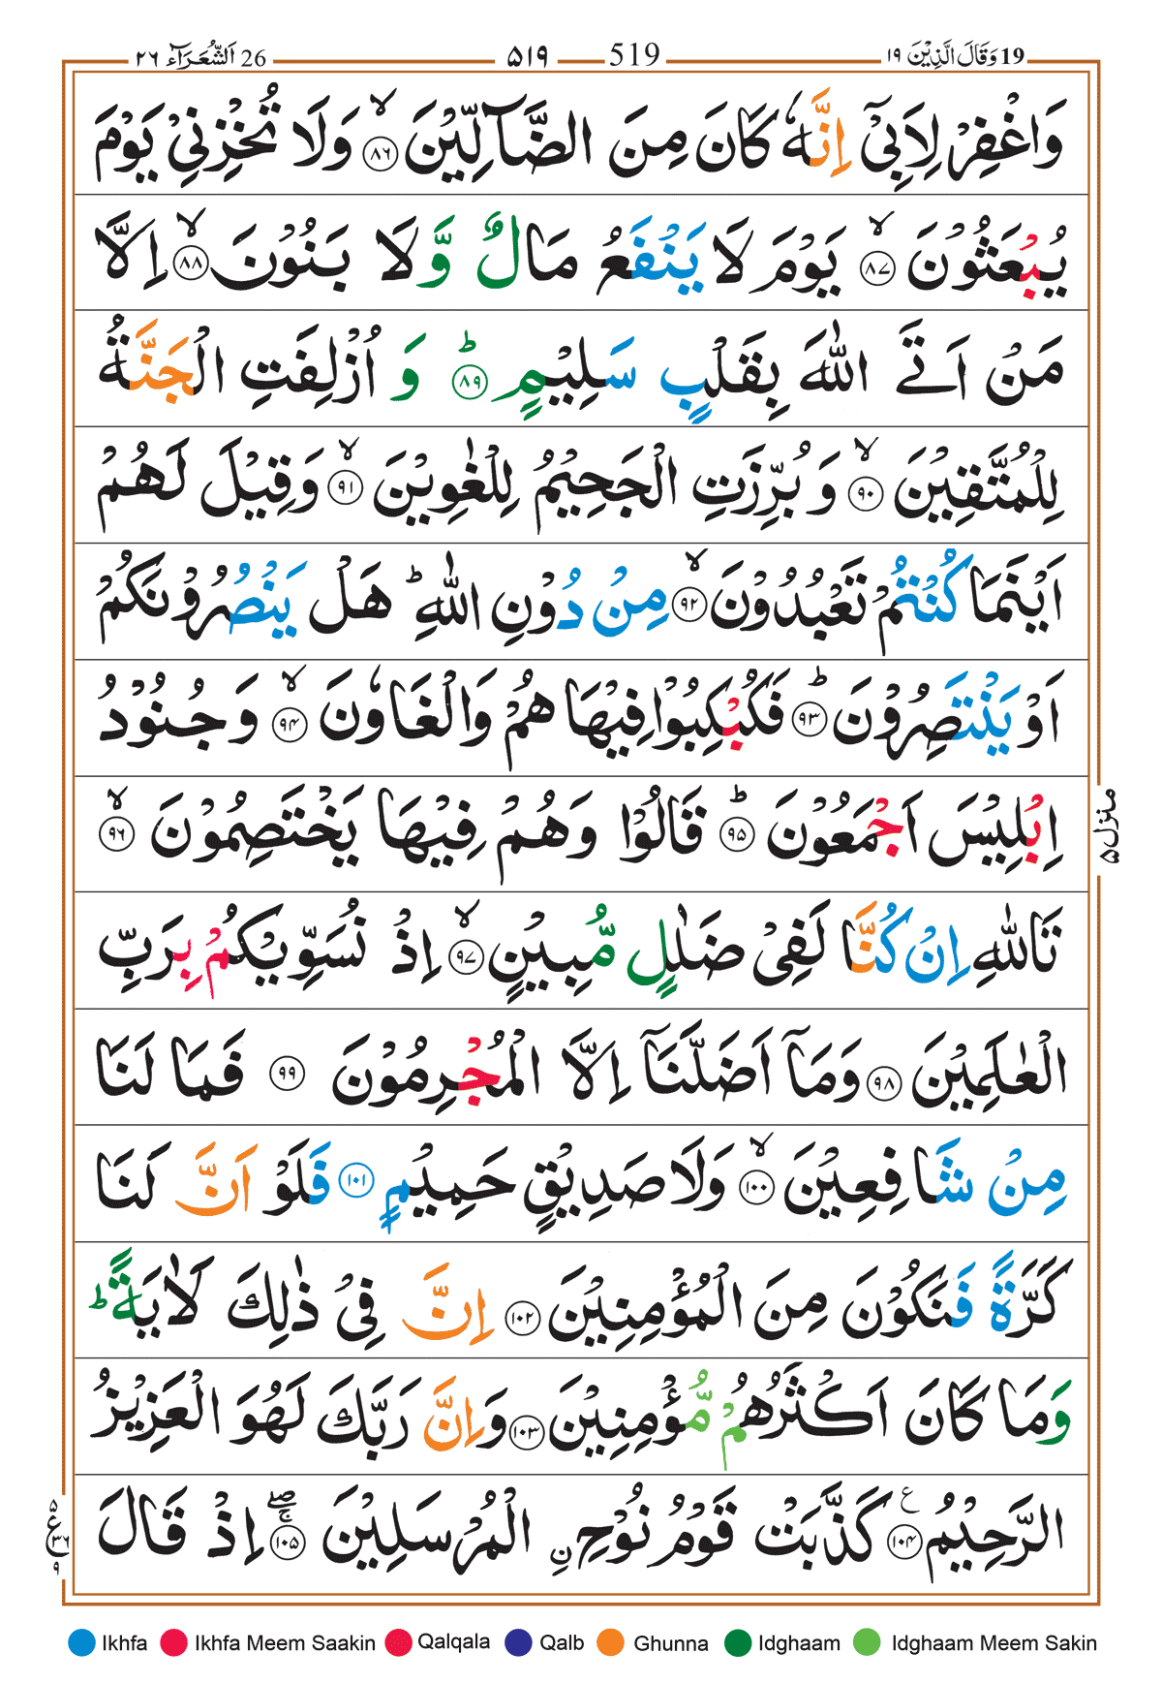 19 وَقَالَ الَّذِيْنَ ١٩
519 ــــ ٥١٩
26 اَلشُّعَرَآء ٢٦
وَاغْفِرْ لِاَبِيْۤ اِنَّهٗ كَانَ مِنَ الضَّآلِّيْنَ ۙ﴿۸۶﴾ وَلَا تُخْزِنِيْ يَوْمَ
يُبْعَثُوْنَ ۙ﴿۸۷﴾ يَوْمَ لَا يَنْفَعُ مَالٌ وَّلَا بَنُوْنَ ۙ﴿۸۸﴾ اِلَّا
مَنْ اَتَى اللّٰهَ بِقَلْبٍ سَلِيْمٍ ؕ﴿۸۹﴾ وَ اُزْلِفَتِ الْجَنَّةُ
لِلْمُتَّقِيْنَ ۙ﴿۹۰﴾ وَ بُرِّزَتِ الْجَحِيْمُ لِلْغٰوِيْنَ ۙ﴿۹۱﴾ وَقِيْلَ لَهُمْ
اَيْنَمَا كُنْتُمْ تَعْبُدُوْنَ ۙ﴿۹۲﴾ مِنْ دُوْنِ اللّٰهِ ؕ هَلْ يَنْصُرُوْنَكُمْ
اَوْ يَنْتَصِرُوْنَ ؕ﴿۹۳﴾ فَكُبْكِبُوْا فِيْهَا هُمْ وَالْغَاوٗنَ ۙ﴿۹۴﴾ وَجُنُوْدُ
اِبْلِيْسَ اَجْمَعُوْنَ ؕ﴿۹۵﴾ قَالُوْا وَهُمْ فِيْهَا يَخْتَصِمُوْنَ ۙ﴿۹۶﴾
تَاللّٰهِ اِنْ كُنَّا لَفِيْ ضَلٰلٍ مُّبِيْنٍ ۙ﴿۹۷﴾ اِذْ نُسَوِّيْكُمْ بِرَبِّ
الْعٰلَمِيْنَ ﴿۹۸﴾ وَمَاۤ اَضَلَّنَاۤ اِلَّا الْمُجْرِمُوْنَ ﴿۹۹﴾ فَمَا لَنَا
مِنْ شَافِعِيْنَ ۙ﴿۱۰۰﴾ وَلَا صَدِيْقٍ حَمِيْمٍ ﴿۱۰۱﴾ فَلَوْ اَنَّ لَنَا
كَرَّةً فَنَكُوْنَ مِنَ الْمُؤْمِنِيْنَ ﴿۱۰۲﴾ اِنَّ فِيْ ذٰلِكَ لَاٰيَةً ؕ
وَمَا كَانَ اَكْثَرُهُمْ مُّؤْمِنِيْنَ ﴿۱۰۳﴾ وَاِنَّ رَبَّكَ لَهُوَ الْعَزِيْزُ
الرَّحِيْمُ ﴿۱۰۴﴾ع كَذَّبَتْ قَوْمُ نُوْحِنِ الْمُرْسَلِيْنَ ۚۖ﴿۱۰۵﴾ اِذْ قَالَ
منزل ۵
۵ ع ۳۶ ۹
Ikhfa Ikhfa Meem Saakin Qalqala Qalb Ghunna Idghaam Idghaam Meem Sakin